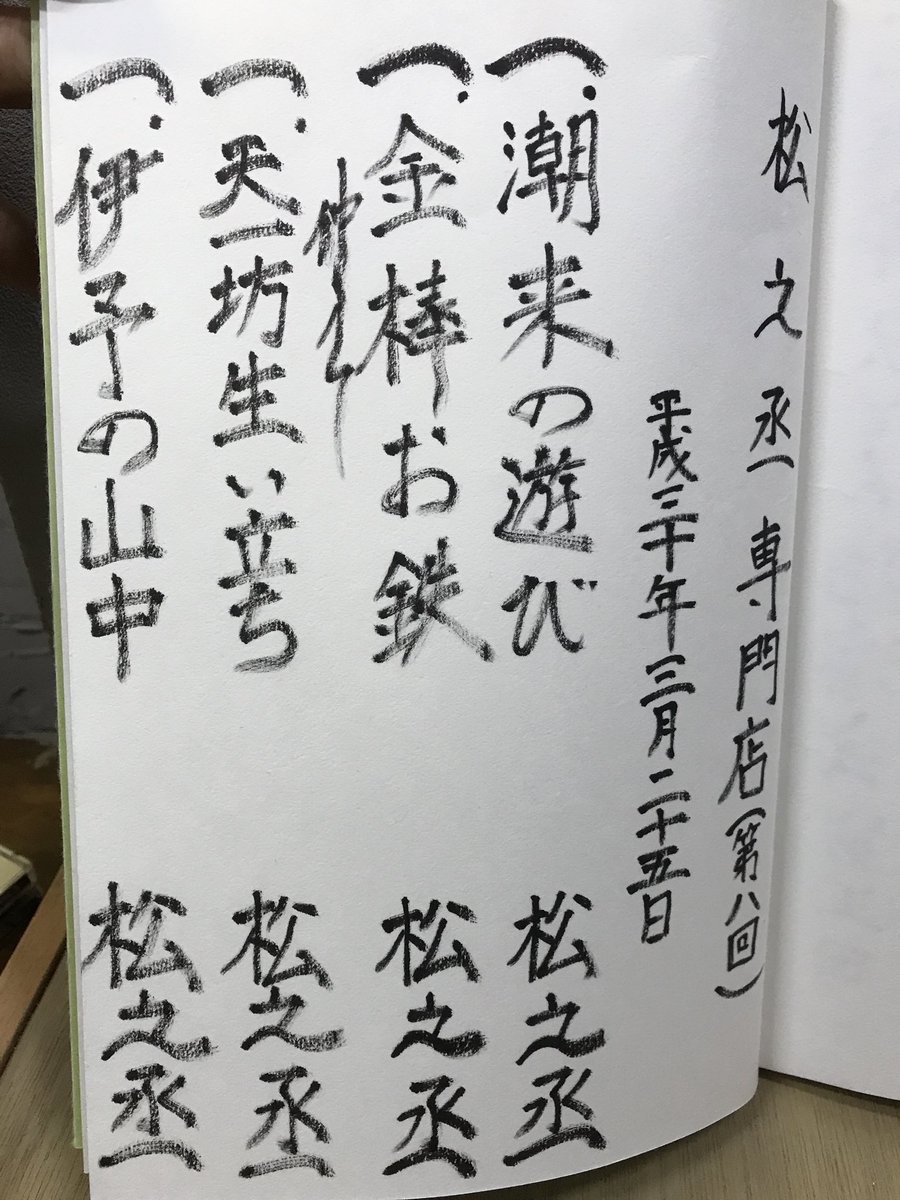 松之丞専門店(第八回)
平成三十年三月二十五日
一、潮来の遊び 松之丞
一、金棒お鉄 松之丞
仲入り
一、天一坊生い立ち 松之丞
一、伊予の山中 松之丞